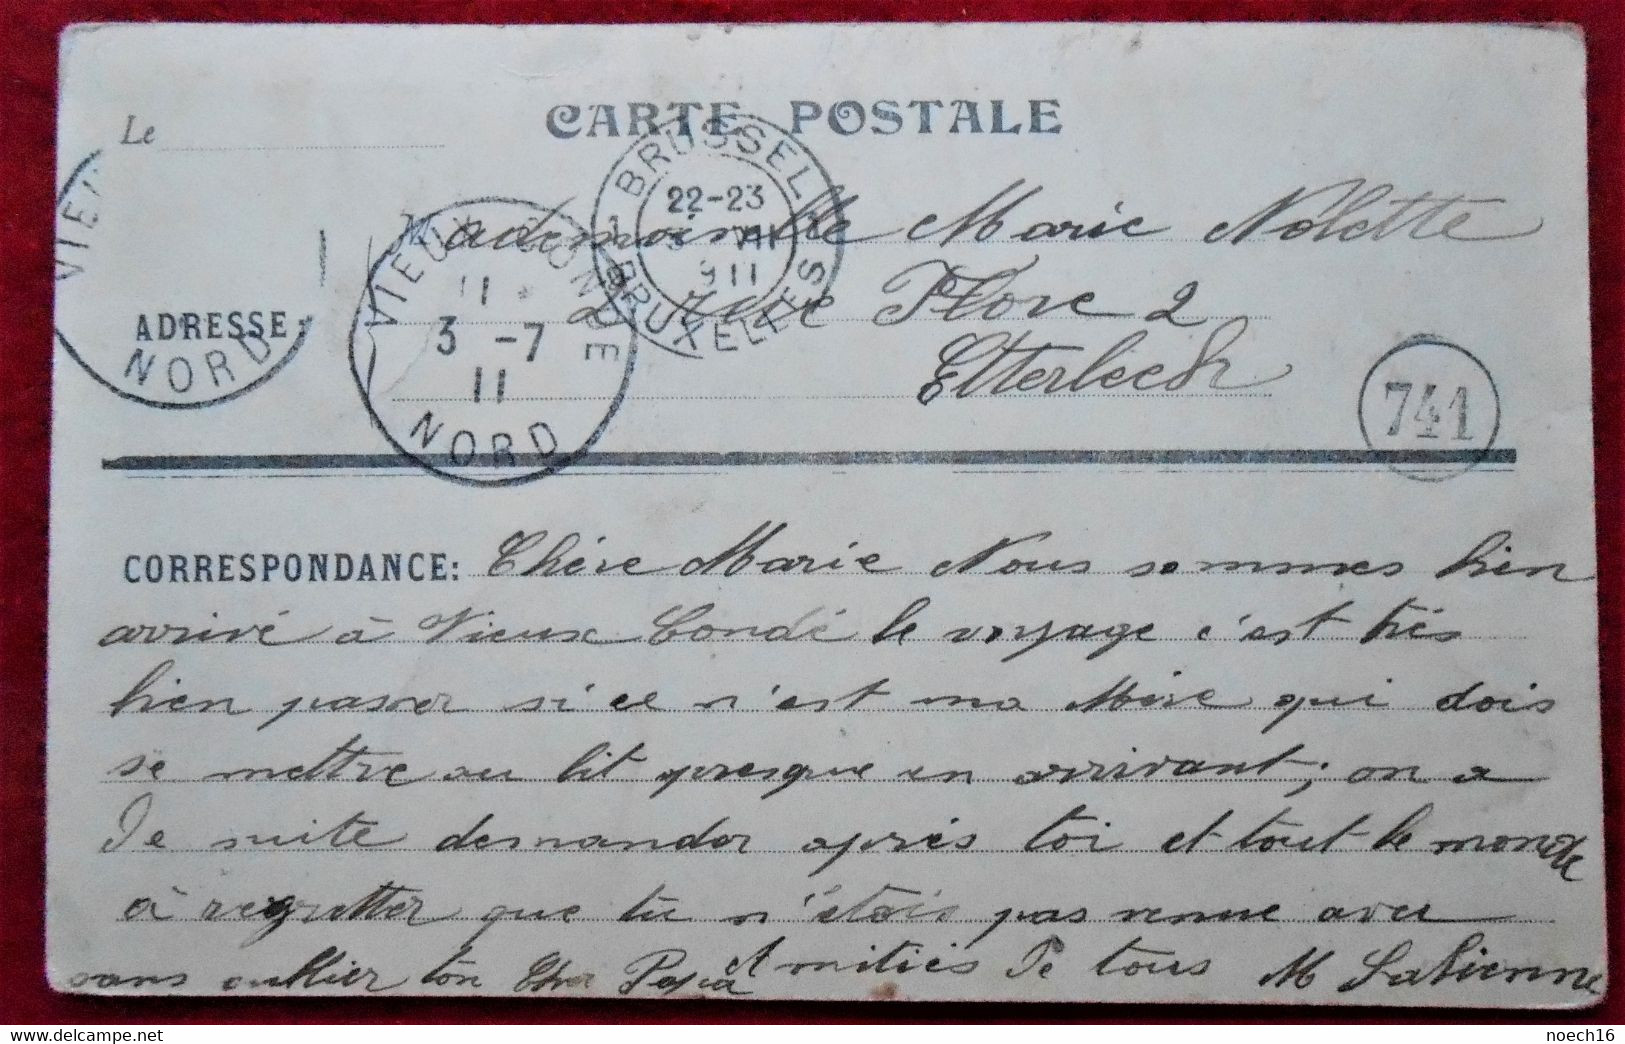 CARTE POSTALE
Le
BRUSSEL 1 BRUXELLES 1
22-23
3 VII
911
VIEUX CONDE
11 *
3 -7
11
NORD
VIEU
NORD
ADRESSE:
Mademoiselle Marie Nolette
2 rue Flore 2
Etterbeeck
741
CORRESPONDANCE: Chére Marie Nous sommes bien
arrivé à Vieux Condé le voyage c'est trés
bien passer si ce n'est ma Mére qui dois
se mettre au lit presque en arrivant; on a
De suite demander aprés toi et tout le monde
à regretter que tu n'étais pas venue avec
sans oublier ton Cher Papa Amitiés De tous M
noech16